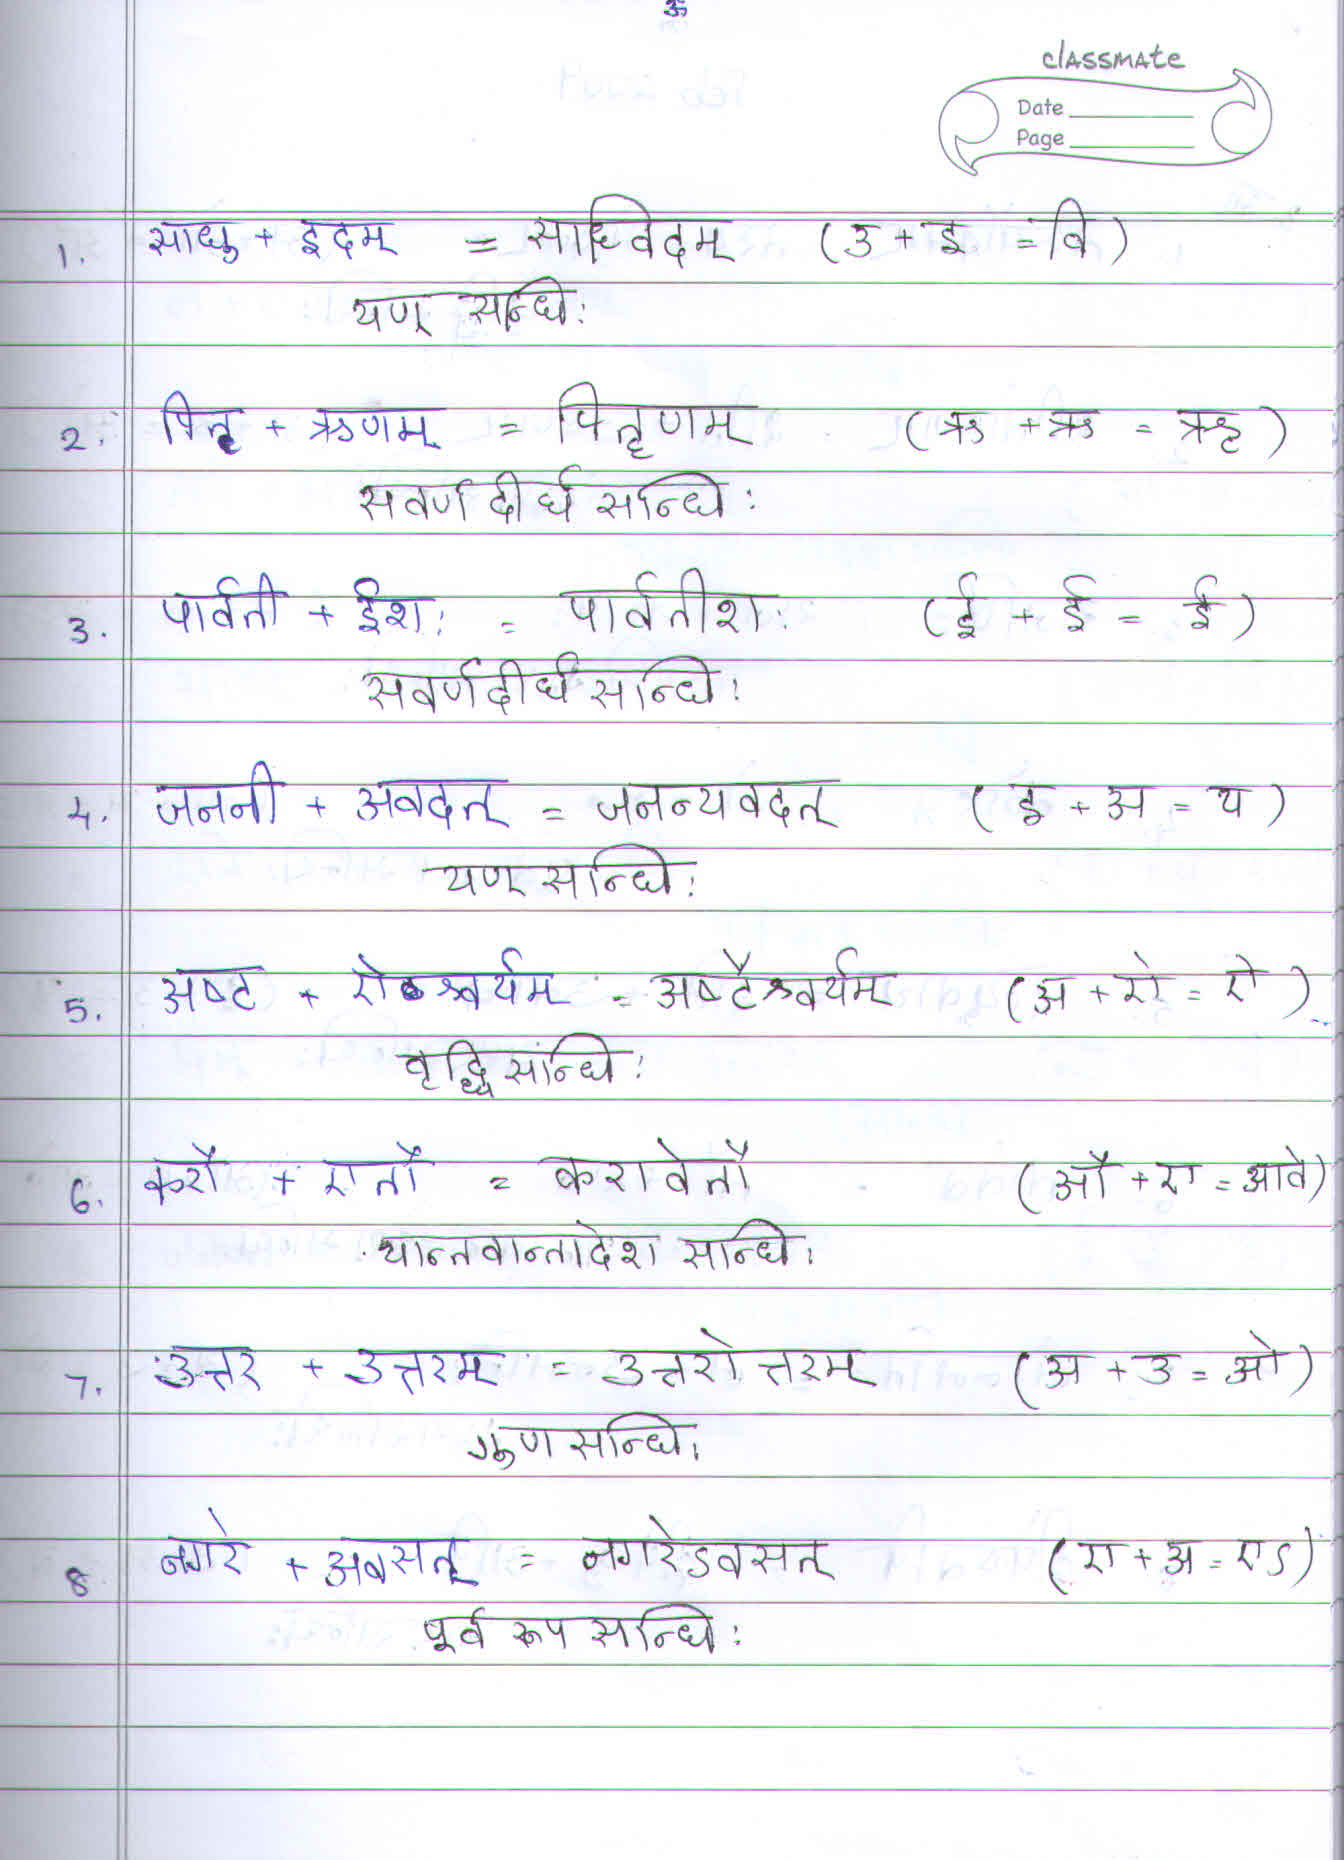 ॐ
classmate
Date
Page
1. साधु + इदम् = साध्विदम् (उ + इ = वि)
यण् सन्धिः
2. पितृ + ऋणम् = पितॄणम् (ऋ + ऋ = ॠ)
सवर्णदीर्घ सन्धिः
3. पार्वती + ईशः = पार्वतीशः (ई + ई = ई)
सवर्णदीर्घ सन्धिः
4. जननी + अवदत् = जनन्यवदत् (ई + अ = य)
यण् सन्धिः
5. अष्ट + ऐश्वर्यम् = अष्टैश्वर्यम् (अ + ऐ = ऐ)
वृद्धि सन्धिः
6. करौ + एतौ = करावेतौ (औ + ए = आवे)
यान्तवान्तादेश सन्धिः
7. उत्तर + उत्तरम् = उत्तरोत्तरम् (अ + उ = ओ)
गुण सन्धिः
8 नगरे + अवसत् = नगरेऽवसत् (ए + अ = एऽ)
पूर्व रूप सन्धिः